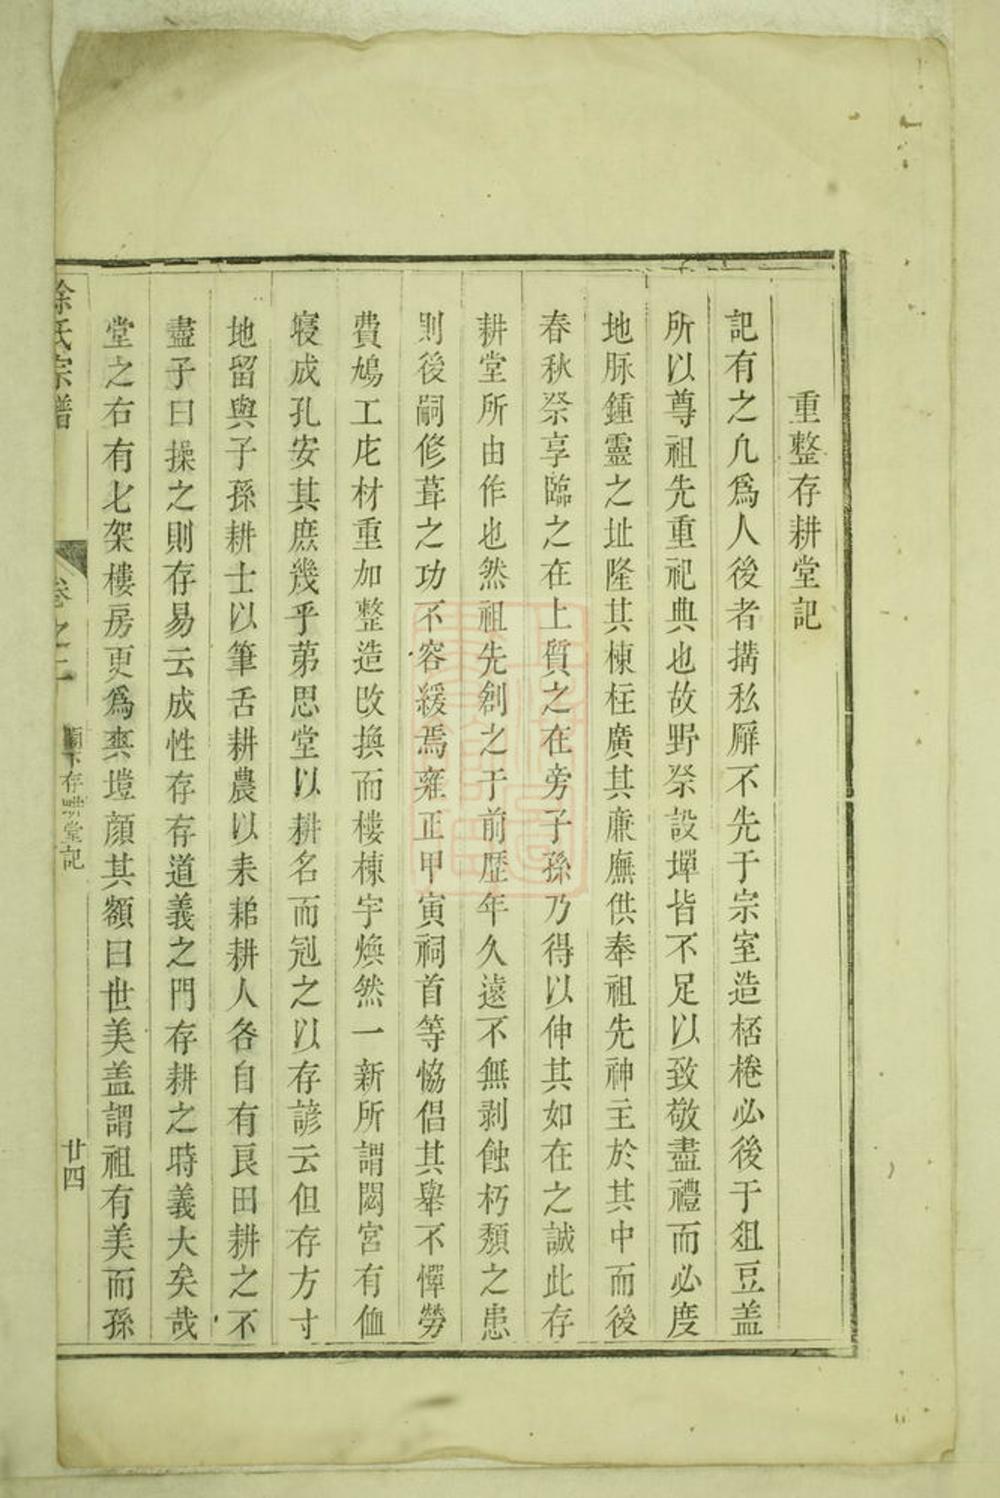 重整存耕堂記
記有之凢爲人後者搆私屛不先于宗室造桮棬必後于俎豆盖
所以尊祖先重祀典也故野祭設墠皆不足以致敬盡禮而必度
地脉鍾靈之址隆其棟柱廣其廉廡供奉祖先神主於其中而後
春秋祭享臨之在上質之在旁子孫乃得以伸其如在之誠此存
耕堂所由作也然祖先創之于前歷年久遠不無剥蝕朽頽之患
則後嗣修葺之功不容緩焉雍正甲寅祠首等恊倡其舉不憚勞
費鳩工庀材重加整造改換而樓棟宇煥然一新所謂閟宮有侐
寢成孔安其庶幾乎苐思堂以耕名而冠之以存諺云但存方寸
地留與子孫耕士以筆舌耕農以耒耜耕人各自有良田耕之不
盡子曰操之則存易云成性存存道義之門存耕之時義大矣哉
堂之右有七架樓房更爲爽塏顔其額曰世美盖謂祖有美而孫
徐氏宗譜
卷之二
存耕堂記
廿四